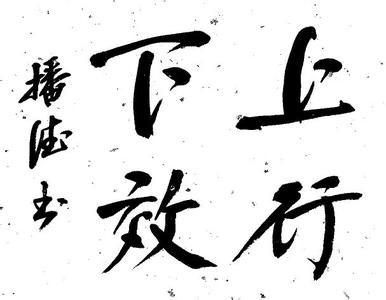 上行
下效
播德书